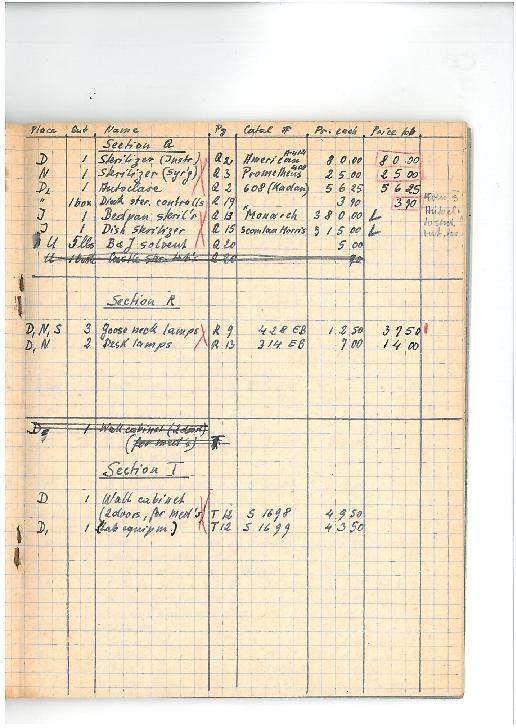 Place Out Name Pg Catal # Pr. each Price tot.
Section Q
D 1 Sterilizer (Instr.) Q 2, American 80.00 80.00
N 1 Sterilizer (Syrg) Q 3 Prometheus 25.00 25.00
D, 1 Autoclave Q 2 608 (Kadan) 56 25 56 25
" 1 box Diack ster. controlls Q 19 3 90 3 90
I 1 Bedpan steril'r Q 13 "Monarch 380.00
I 1 Dish Sterilizer Q 15 Scanlan Morris 515.00
U 5 lbs B & J solvent Q 20 5 00
U 1 Q 20 90
Section R
D, N, S 3 Goose neck lamps R 9 428 EB 12 50 37 50
D, N 2 Desk lamps R 13 314 EB 7 00 14 00
1 Wall cabinet (2 doors)
(for med's) T
Section T
D 1 Wall cabinet
(2 doors, for med's) T 12 S 1698 49 50
D, 1 (Lab equipm.) T 12 S 1699 43 50